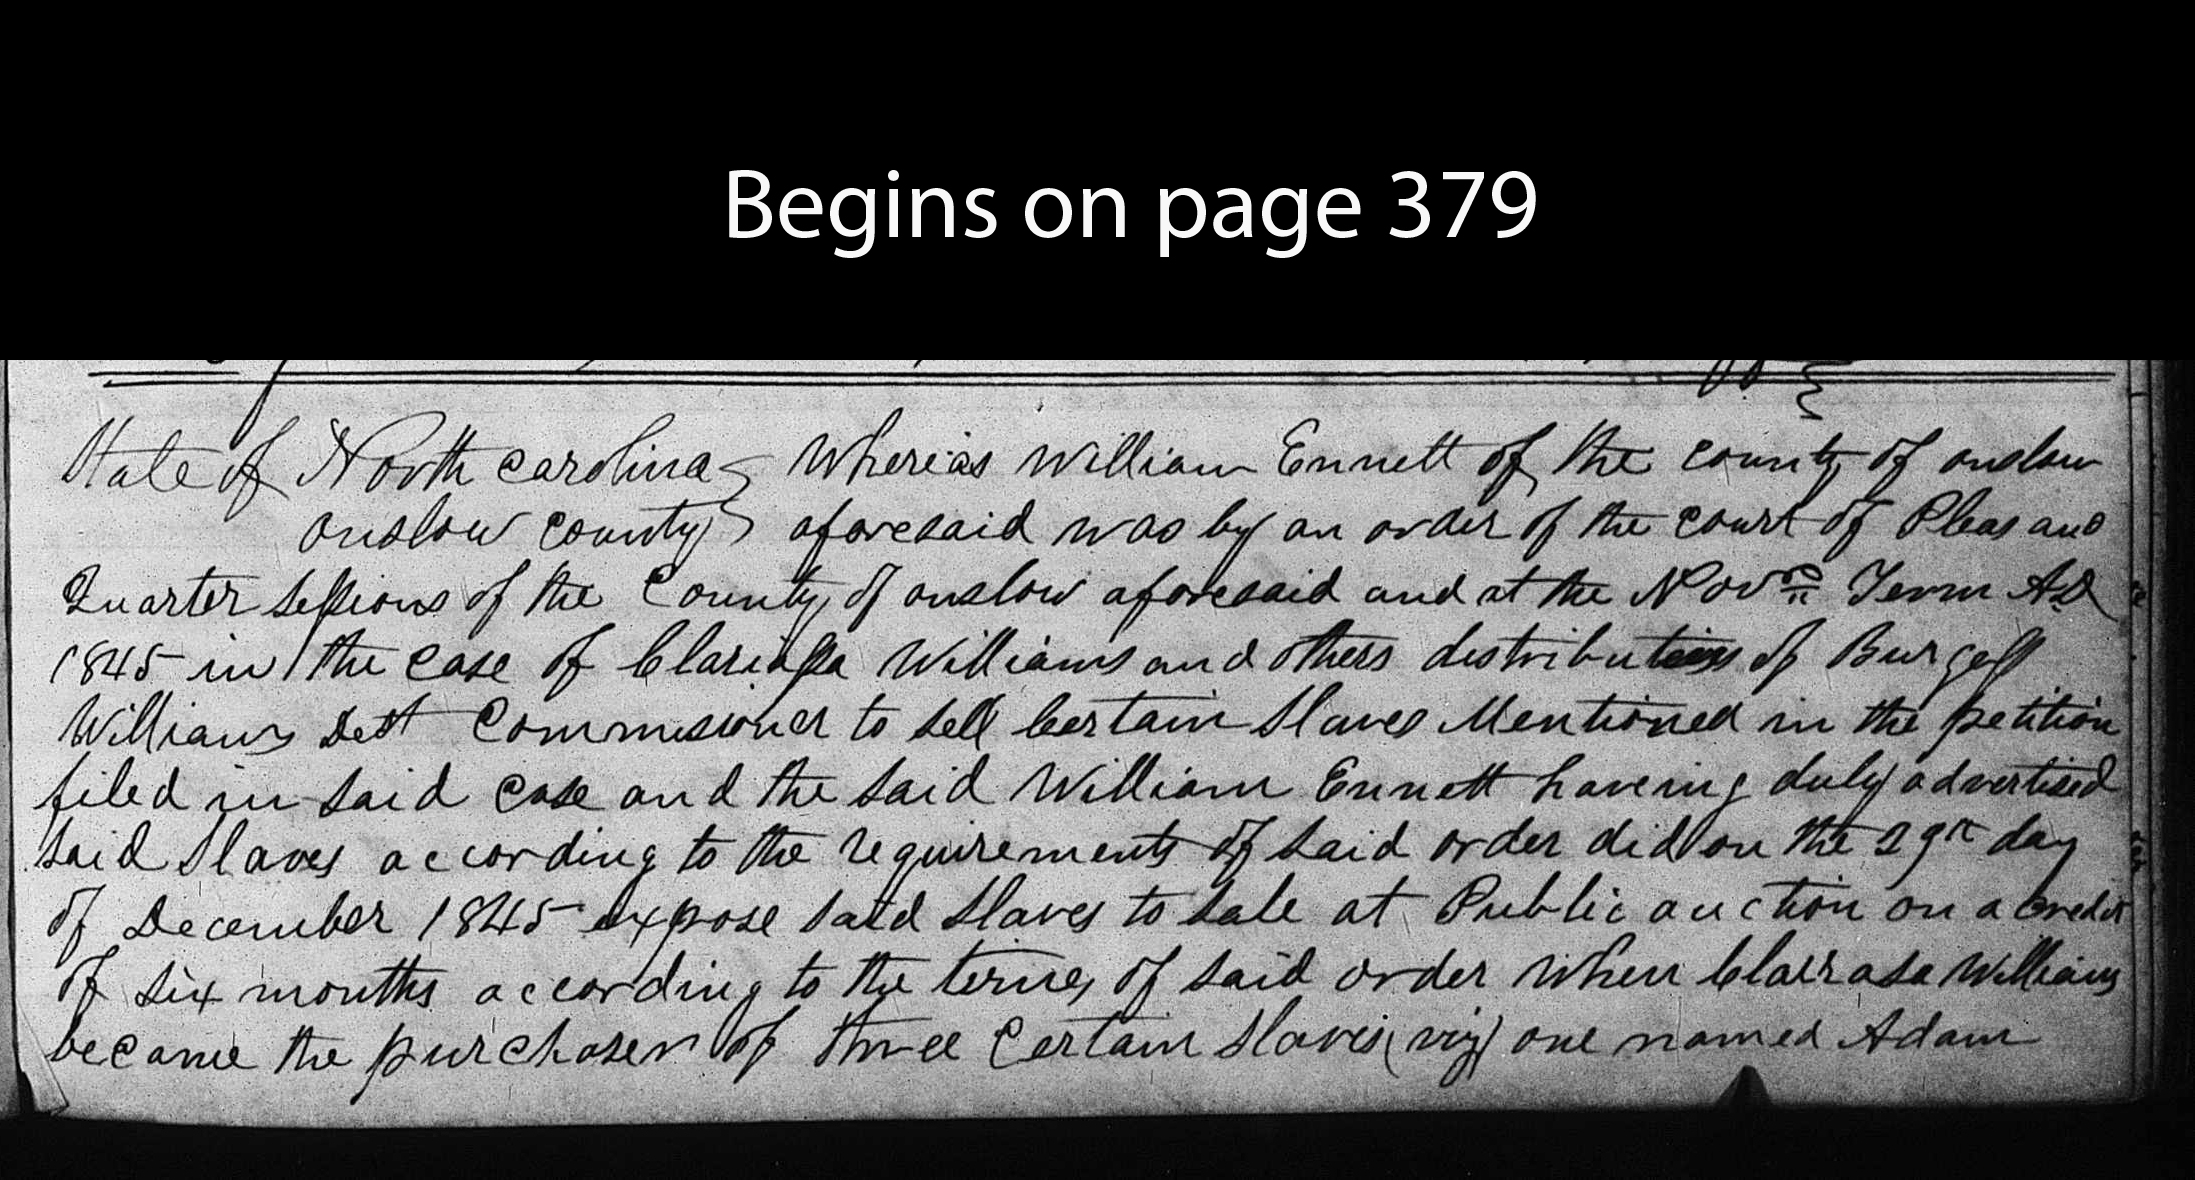 Begins on page 379
State of North carolina Whereas William Ennett of the county of onslow
onslow county aforesaid was by an order of the court of Pleas and
Quarter Sessions of the County of onslow aforesaid and at the Novr Term AD
1845 in the case of Clarissa Williams and others distributees of Burgess
Williams Decd Commisioner to sell Certain Slaves Mentioned in the petition
filed in said case and the said William Ennett haveing duly advertised
said Slaves according to the requirements of said order did on the 29th day
of December 1845 expose said Slaves to sale at Public auction on a credit
of six months according to the terms of said order When Clarrasa Williams
became the purchaser of three Certain Slaves (viz) one named Adam